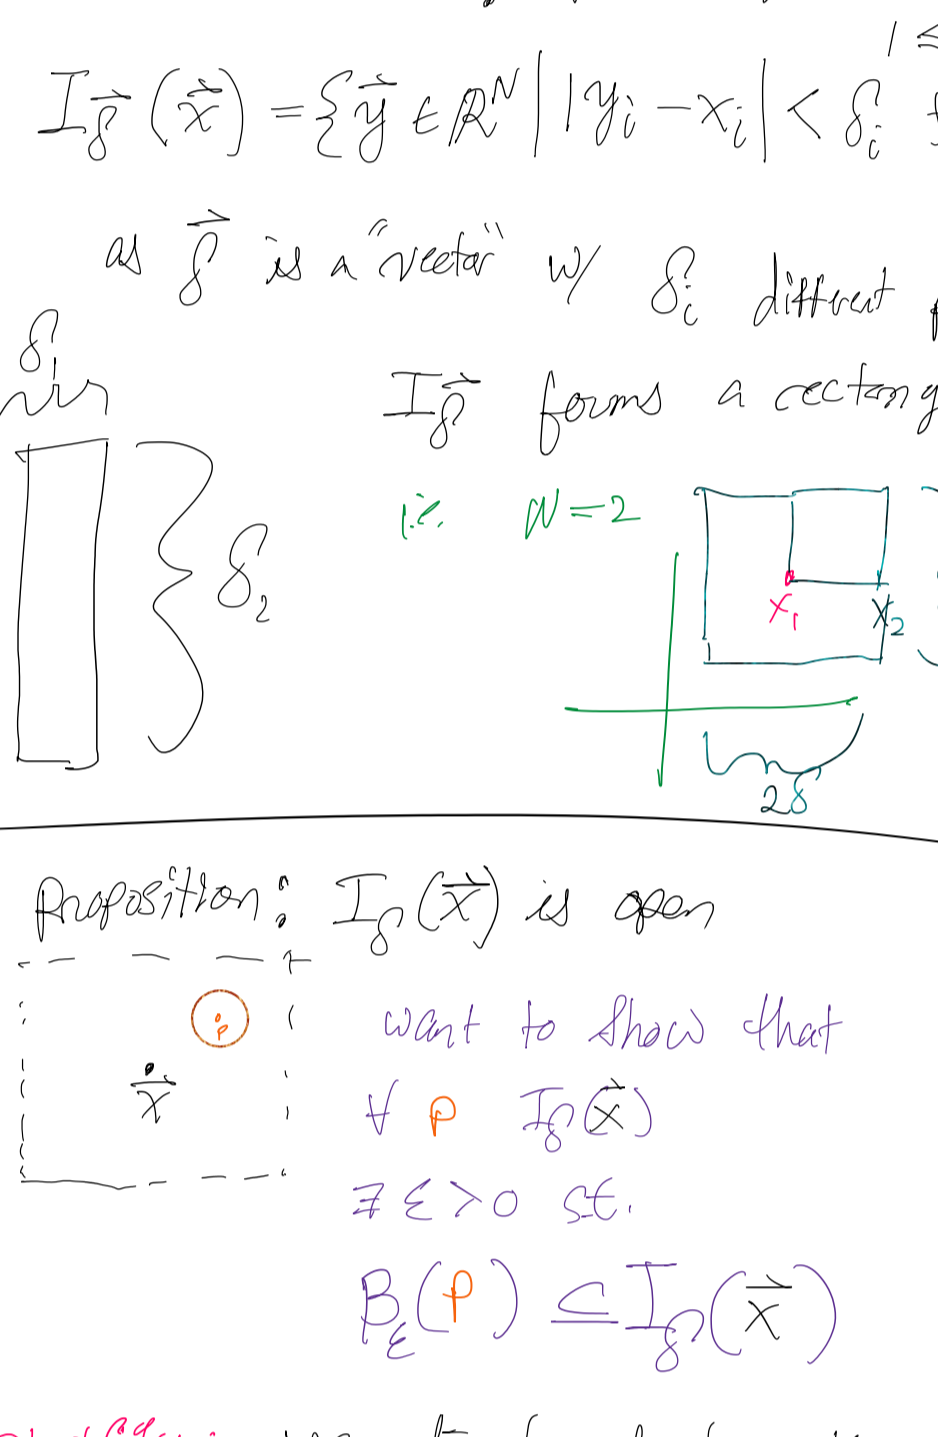 1 ≤
I_δ⃗ (x⃗) = {y⃗ ∈ ℝ^N | |y_i − x_i| < δ_i
as δ⃗ is a "vector" w/ δ_i different
δ_1
I_δ⃗ forms a rectang
i.e. N=2
δ_2
x_1 x_2
2δ
Proposition: I_δ(x⃗) is open
want to show that
p
∀ p I_δ(x⃗)
x⃗
∃ ε>0 st.
B_ε(p) ⊆ I_δ(x⃗)